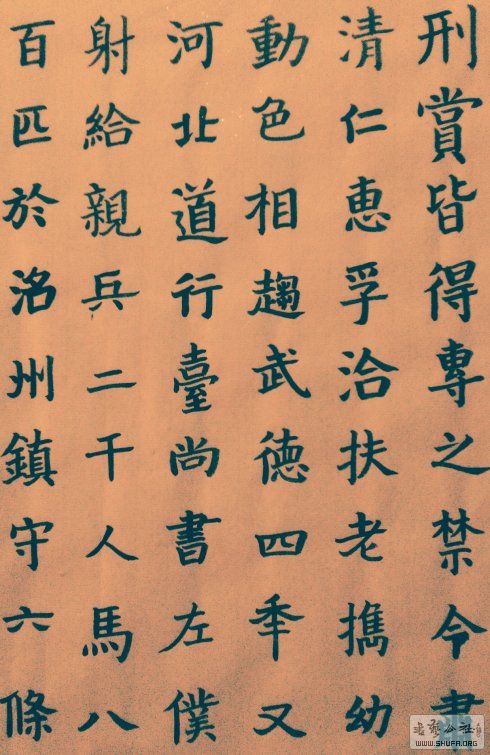 刑賞皆得專之禁令肅
清仁惠孚洽扶老攜幼
動色相趨武德四年又
河北道行臺尚書左僕
射給親兵二千人馬八
百匹於洺州鎮守六條
WWW.SHUFA.ORG